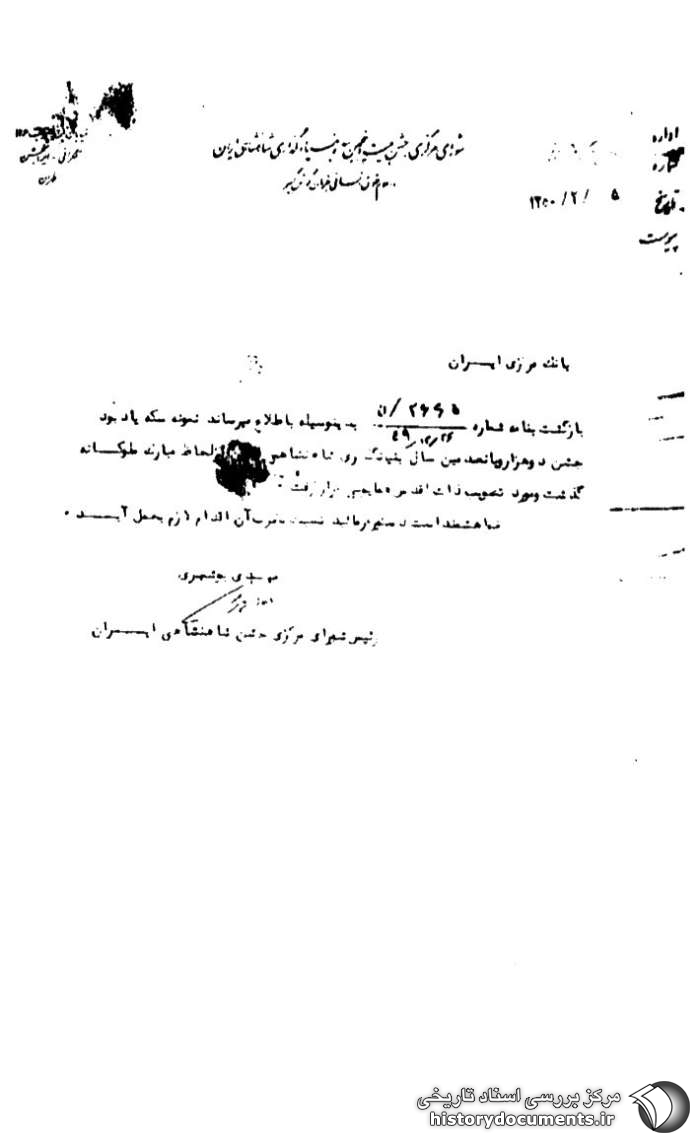 اداره
شماره
تاریخ ۵ /۲/ ۱۳۵۰
پیوست
شورای مرکزی جشن بیست و پنجمین سده بنیادگذاری شاهنشاهی ایران
تهران
بانک مرکزی ایـــران
بازگشت بنامه شماره ۲۶۶۵ /ان
۴۹/۱۲/۲۶ بدینوسیله باطلاع میرساند نمونه سکه یادبود
جشن دوهزاروپانصدمین سال بنیانگذاری شاهنشاهی لحاظ مبارک ملوکانه
گذشت ومورد تصویب ذات اقدس همایونی قرارگرفت
خواهشمند است دستورفرمائید نسبت بضرب آن اقدام لازم بعمل آیـــد ٠
مهدی بوشهری
رئیس شورای مرکزی جشن شاهنشاهی ایـــران
مرکز بررسی اسناد تاریخی
historydocuments.ir